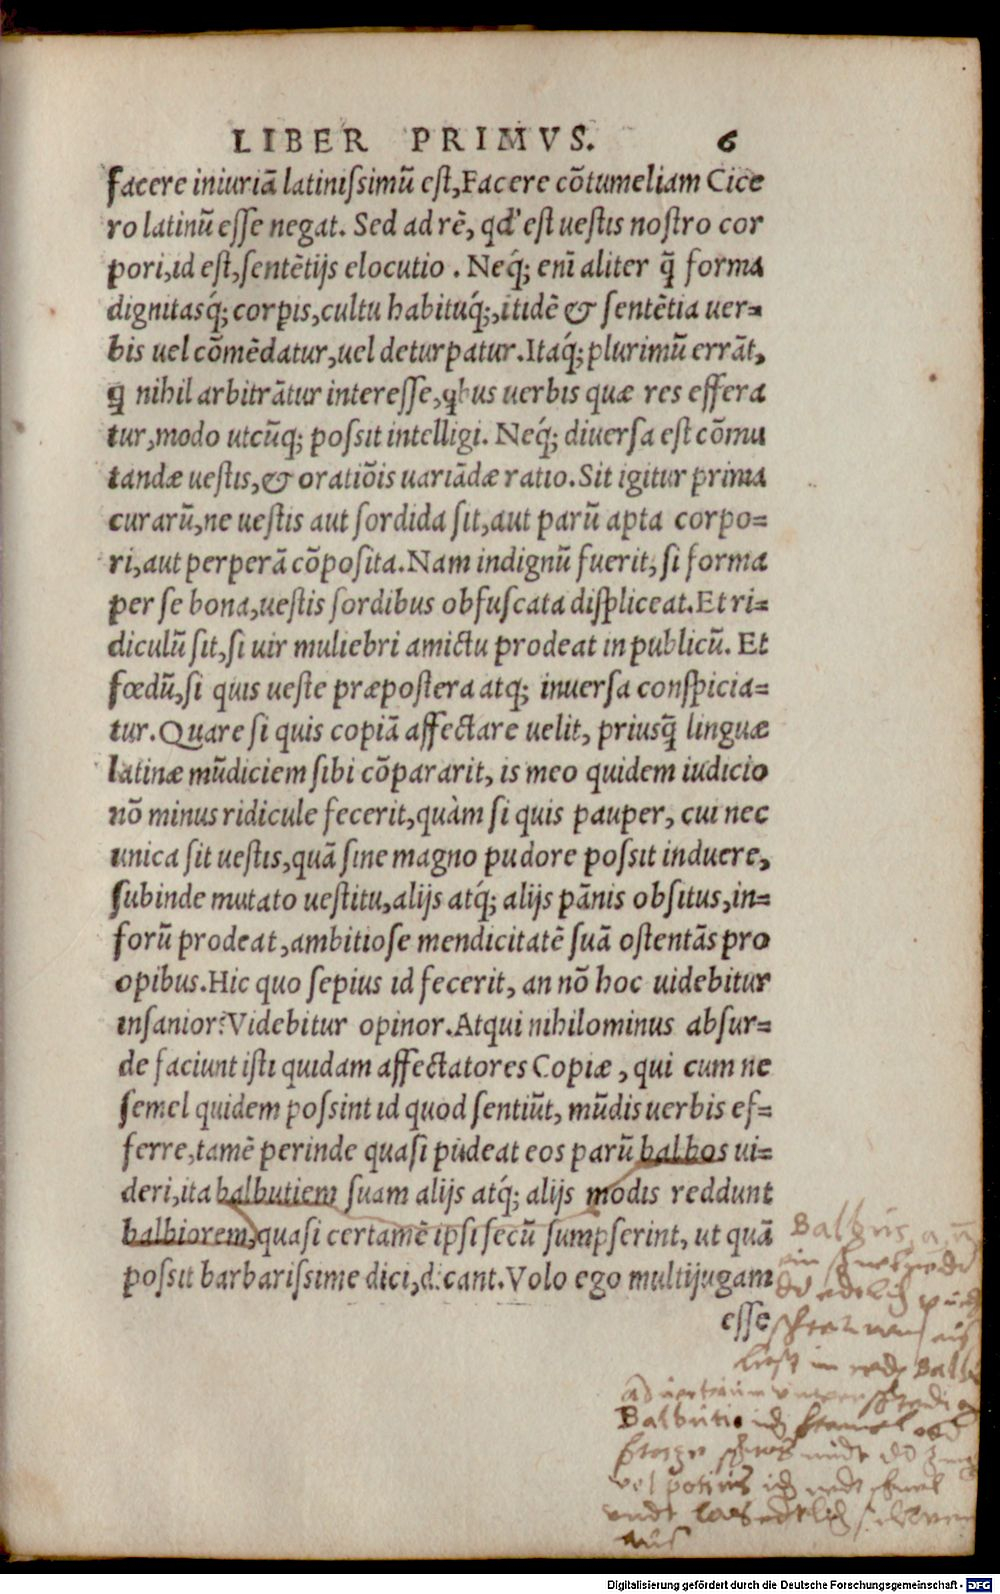 LIBER PRIMVS. 6
facere iniuriã latinissimũ est, Facere cõtumeliam Cice
ro latinũ esse negat. Sed ad rẽ, qd' est uestis nostro cor
pori, id est, sentẽtijs elocutio. Neq́; enĩ aliter q̃ forma
dignitasq́; corpis, cultu habituq́;, itidẽ & sentẽtia uer=
bis uel cõmẽdatur, uel deturpatur. Itaq́; plurimũ errãt,
q̃ nihil arbitrãtur interesse, qbus uerbis quæ res effera
tur, modo utcũq; possit intelligi. Neq́; diuersa est cõmu
tandæ uestis, & oratiõis uariãdæ ratio. Sit igitur prima
curarũ, ne uestis aut sordida sit, aut parũ apta corpo=
ri, aut perperã cõposita. Nam indignũ fuerit, si forma
per se bona, uestis sordibus obfuscata displiceat. Et ri=
diculũ sit, si uir muliebri amictu prodeat in publicũ. Et
fœdũ, si quis ueste præpostera atq; inuersa conspicia=
tur. Quare si quis copiã affectare uelit, priusq̃ linguæ
latinæ mũdiciem sibi cõpararit, is meo quidem iudicio
nõ minus ridicule fecerit, quàm si quis pauper, cui nec
unica sit uestis, quã sine magno pudore possit induere,
subinde mutato uestitu, alijs atq́; alijs pãnis obsitus, in=
forũ prodeat, ambitiose mendicitatẽ suã ostentãs pro
opibus. Hic quo sepius id fecerit, an nõ hoc uidebitur
insanior? Videbitur opinor. Atqui nihilominus absur=
de faciunt isti quidam affectatores Copiæ, qui cum ne
semel quidem possint id quod sentiũt, mũdis uerbis ef=
ferre, tamẽ perinde quasi pudeat eos parũ balbos ui=
deri, ita balbutiem suam alijs atq́; alijs modis reddunt
balbiorem, quasi certamẽ ipsi secũ sumpserint, ut quã
possit barbarissime dici, dicant. Volo ego multijugam
esse
Balbus, a, ũ
Balbutio
vel potius
aus
Digitalisierung gefördert durch die Deutsche Forschungsgemeinschaft - DFG